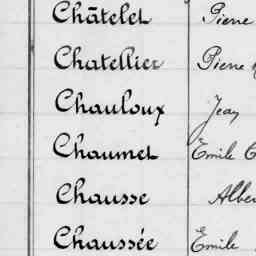 Châtelet Pierre
Chatellier Pierre
Chauloux Jean
Chaumet Emile
Chausse Alber
Chaussée Emile